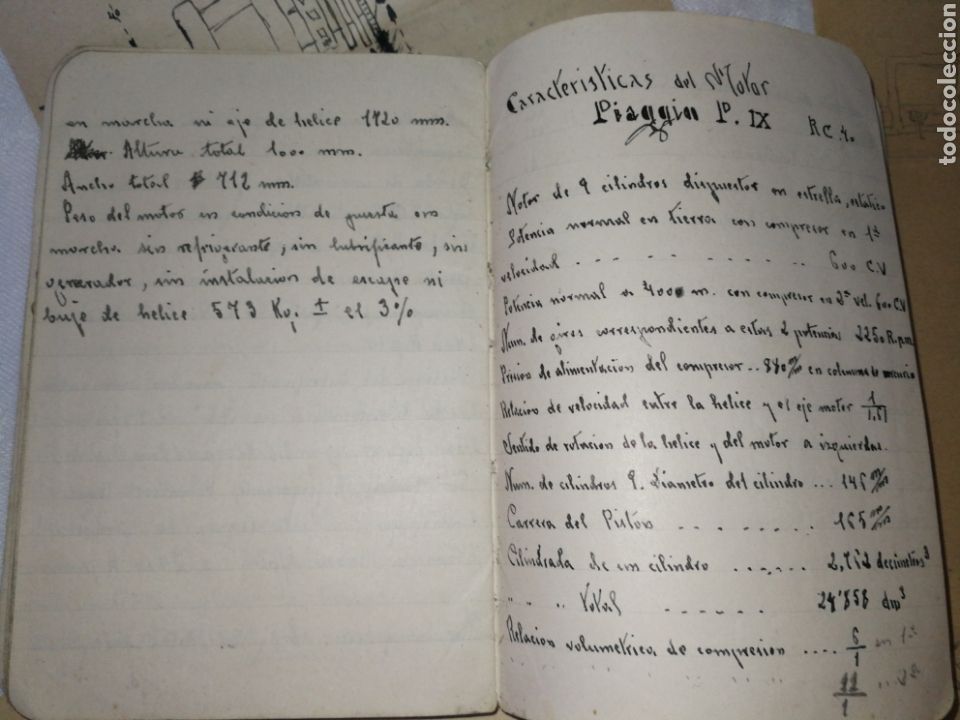 en marcha ni eje de helice 1720 mm.
Altura total 1000 mm.
Ancho total 712 mm.
Peso del motor en condicion de puesta en
marcha sin refrigerante, sin lubrificante, sin
generador, sin instalacion de escape ni
buje de helice 573 Kg ± el 3%
Caracteristicas del Motor
Piaggio P. IX RC 4.
Motor de 9 cilindros dispuestos en estrella, estatico
Potencia normal en tierra con compresor en 1ª
velocidad - - - - - - - - - - - 600 C.V
Potencia normal a 4000 m. con compresor en 2ª vel. 600 C.V
Num. de giros correspondientes a estas 2 potencias 2250 R.p.m
Presion de alimentacion del compresor .. 840 m/m en columna de mercurio
Relacion de velocidad entre la helice y el eje motor 1/1,61
Sentido de rotacion de la helice y del motor a izquierdas.
Num. de cilindros 9. Diametro del cilindro ... 146 m/m
Carrera del Piston - - - - - - - . 165 m/m
Cilindrada de un cilindro - - - - - - 2,762 decimetros³
" " " Total - - - - - - 24'858 dm³
Relacion volumetrica de compresion .... 6/1 en 1ª
11/1 .. 2ª
todocoleccion
todocoleccion